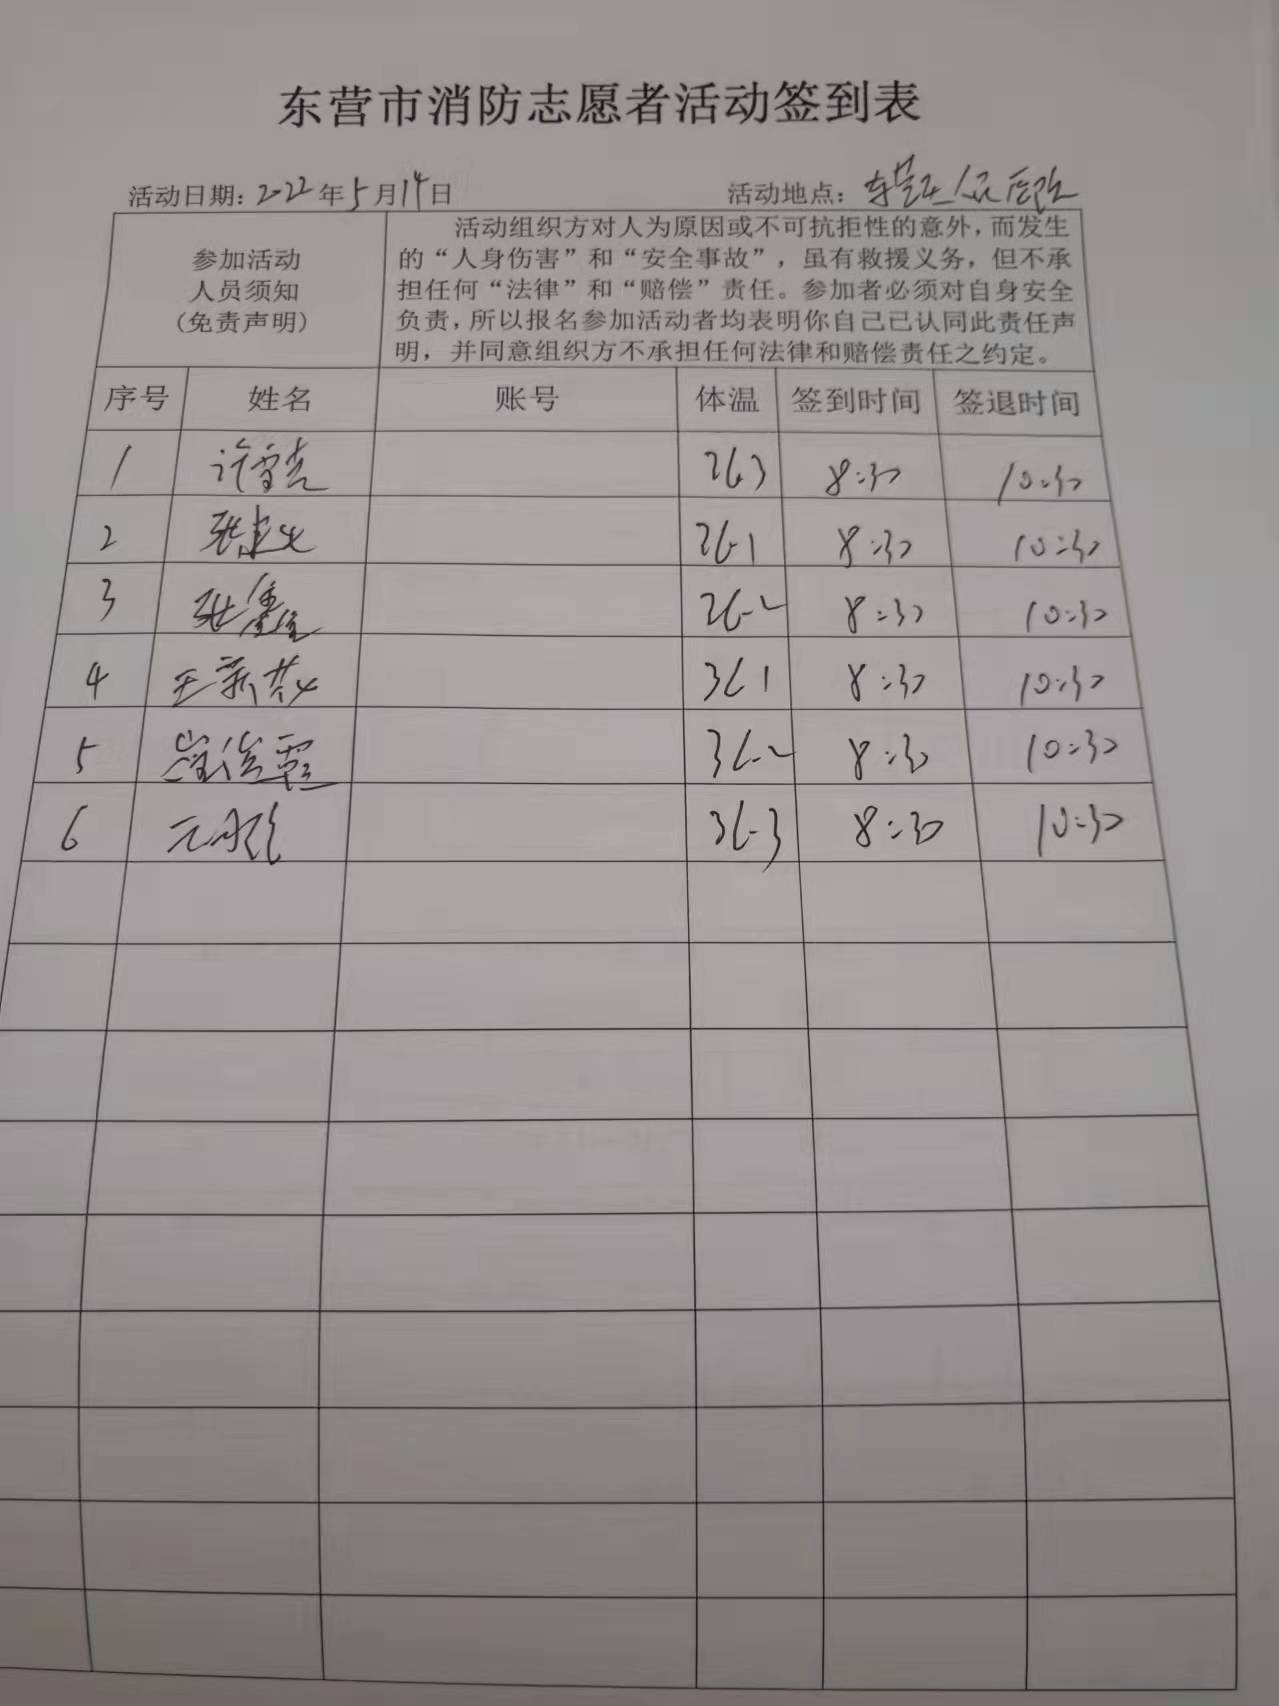 东营市消防志愿者活动签到表
活动日期:2022年5月14日 活动地点:东营区人民医院
参加活动
人员须知
(免责声明)
活动组织方对人为原因或不可抗拒性的意外,而发生
的“人身伤害”和“安全事故”,虽有救援义务,但不承
担任何“法律”和“赔偿”责任。参加者必须对自身安全
负责,所以报名参加活动者均表明你自己已认同此责任声
明,并同意组织方不承担任何法律和赔偿责任之约定。
序号 姓名 账号 体温 签到时间 签退时间
1 许雪亮 36.3 8:30 10:30
2 张建文 36.1 8:30 10:30
3 张鑫鑫 36.2 8:30 10:30
4 王新 36.1 8:30 10:30
5 崔俊霞 36.2 8:30 10:30
6 36.3 8:30 10:30